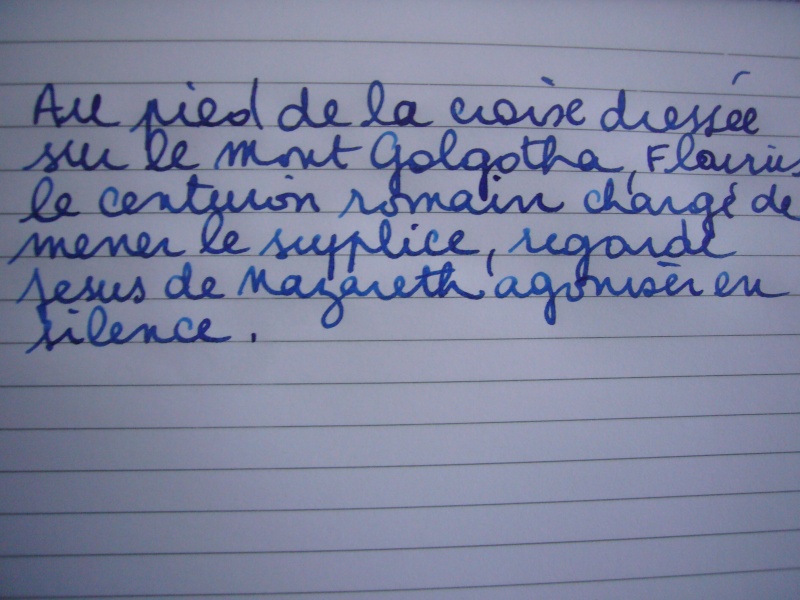 Au pied de la croise dressée
sur le mont Golgotha, Flavius
le centurion romain chargé de
mener le supplice, regarde
Jesus de Nazareth agoniser en
silence.